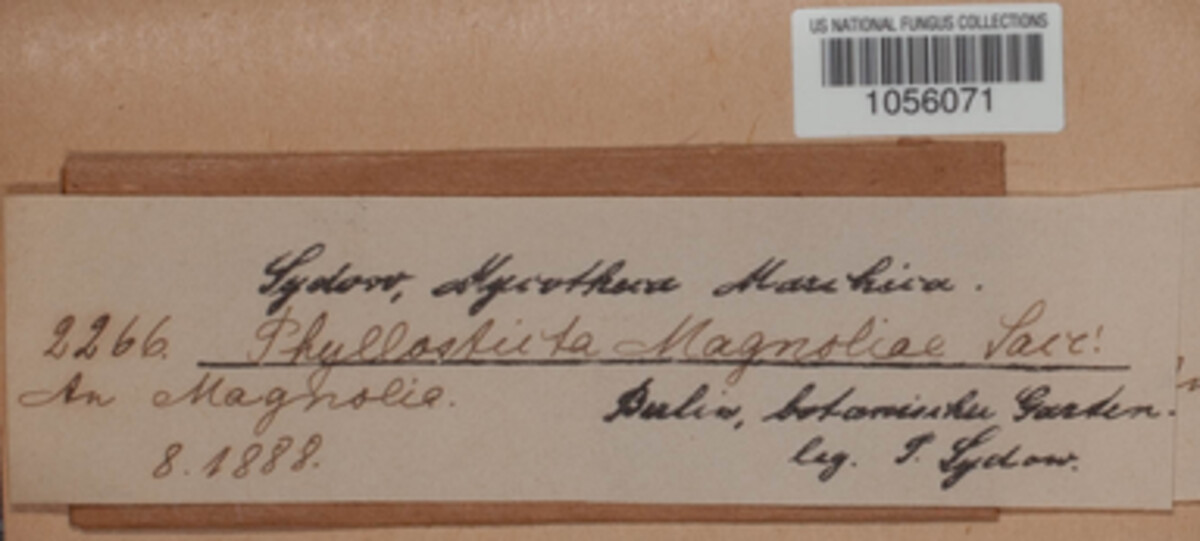 US NATIONAL FUNGUS COLLECTIONS
1056071
Sydow, Mycotheca Marchica.
2266. Phyllosticta Magnoliae Sacc!
An Magnolia.
Berlin, botanischer Garten.
8.1888.
leg. P. Sydow.